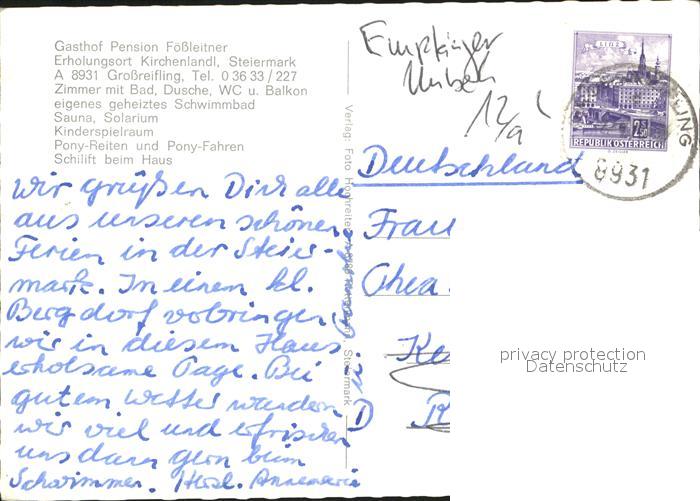 Gasthof Pension Fößleitner
Erholungsort Kirchenlandl, Steiermark
A 8931 Großreifling, Tel. 0 36 33 / 227
Zimmer mit Bad, Dusche, WC u. Balkon
eigenes geheiztes Schwimmbad
Sauna, Solarium
Kinderspielraum
Pony-Reiten und Pony-Fahren
Schilift beim Haus
Wir grüßen Dich alle
aus unseren schönen
Ferien in der Steier-
mark. In einem kl.
Bergdorf verbringen
wir in diesem Haus
erholsame Tage. Bei
gutem Wetter wandern
wir viel und erfrischen
uns dann gern beim
Schwimmen. Herzl. Annemarie
Verlag: Foto
Steiermark
Empfänger
12/9
LINZ
2.50
REPUBLIK ÖSTERREICH
8931
Deutschland
Frau
Thea
Ke
D
privacy protection
Datenschutz